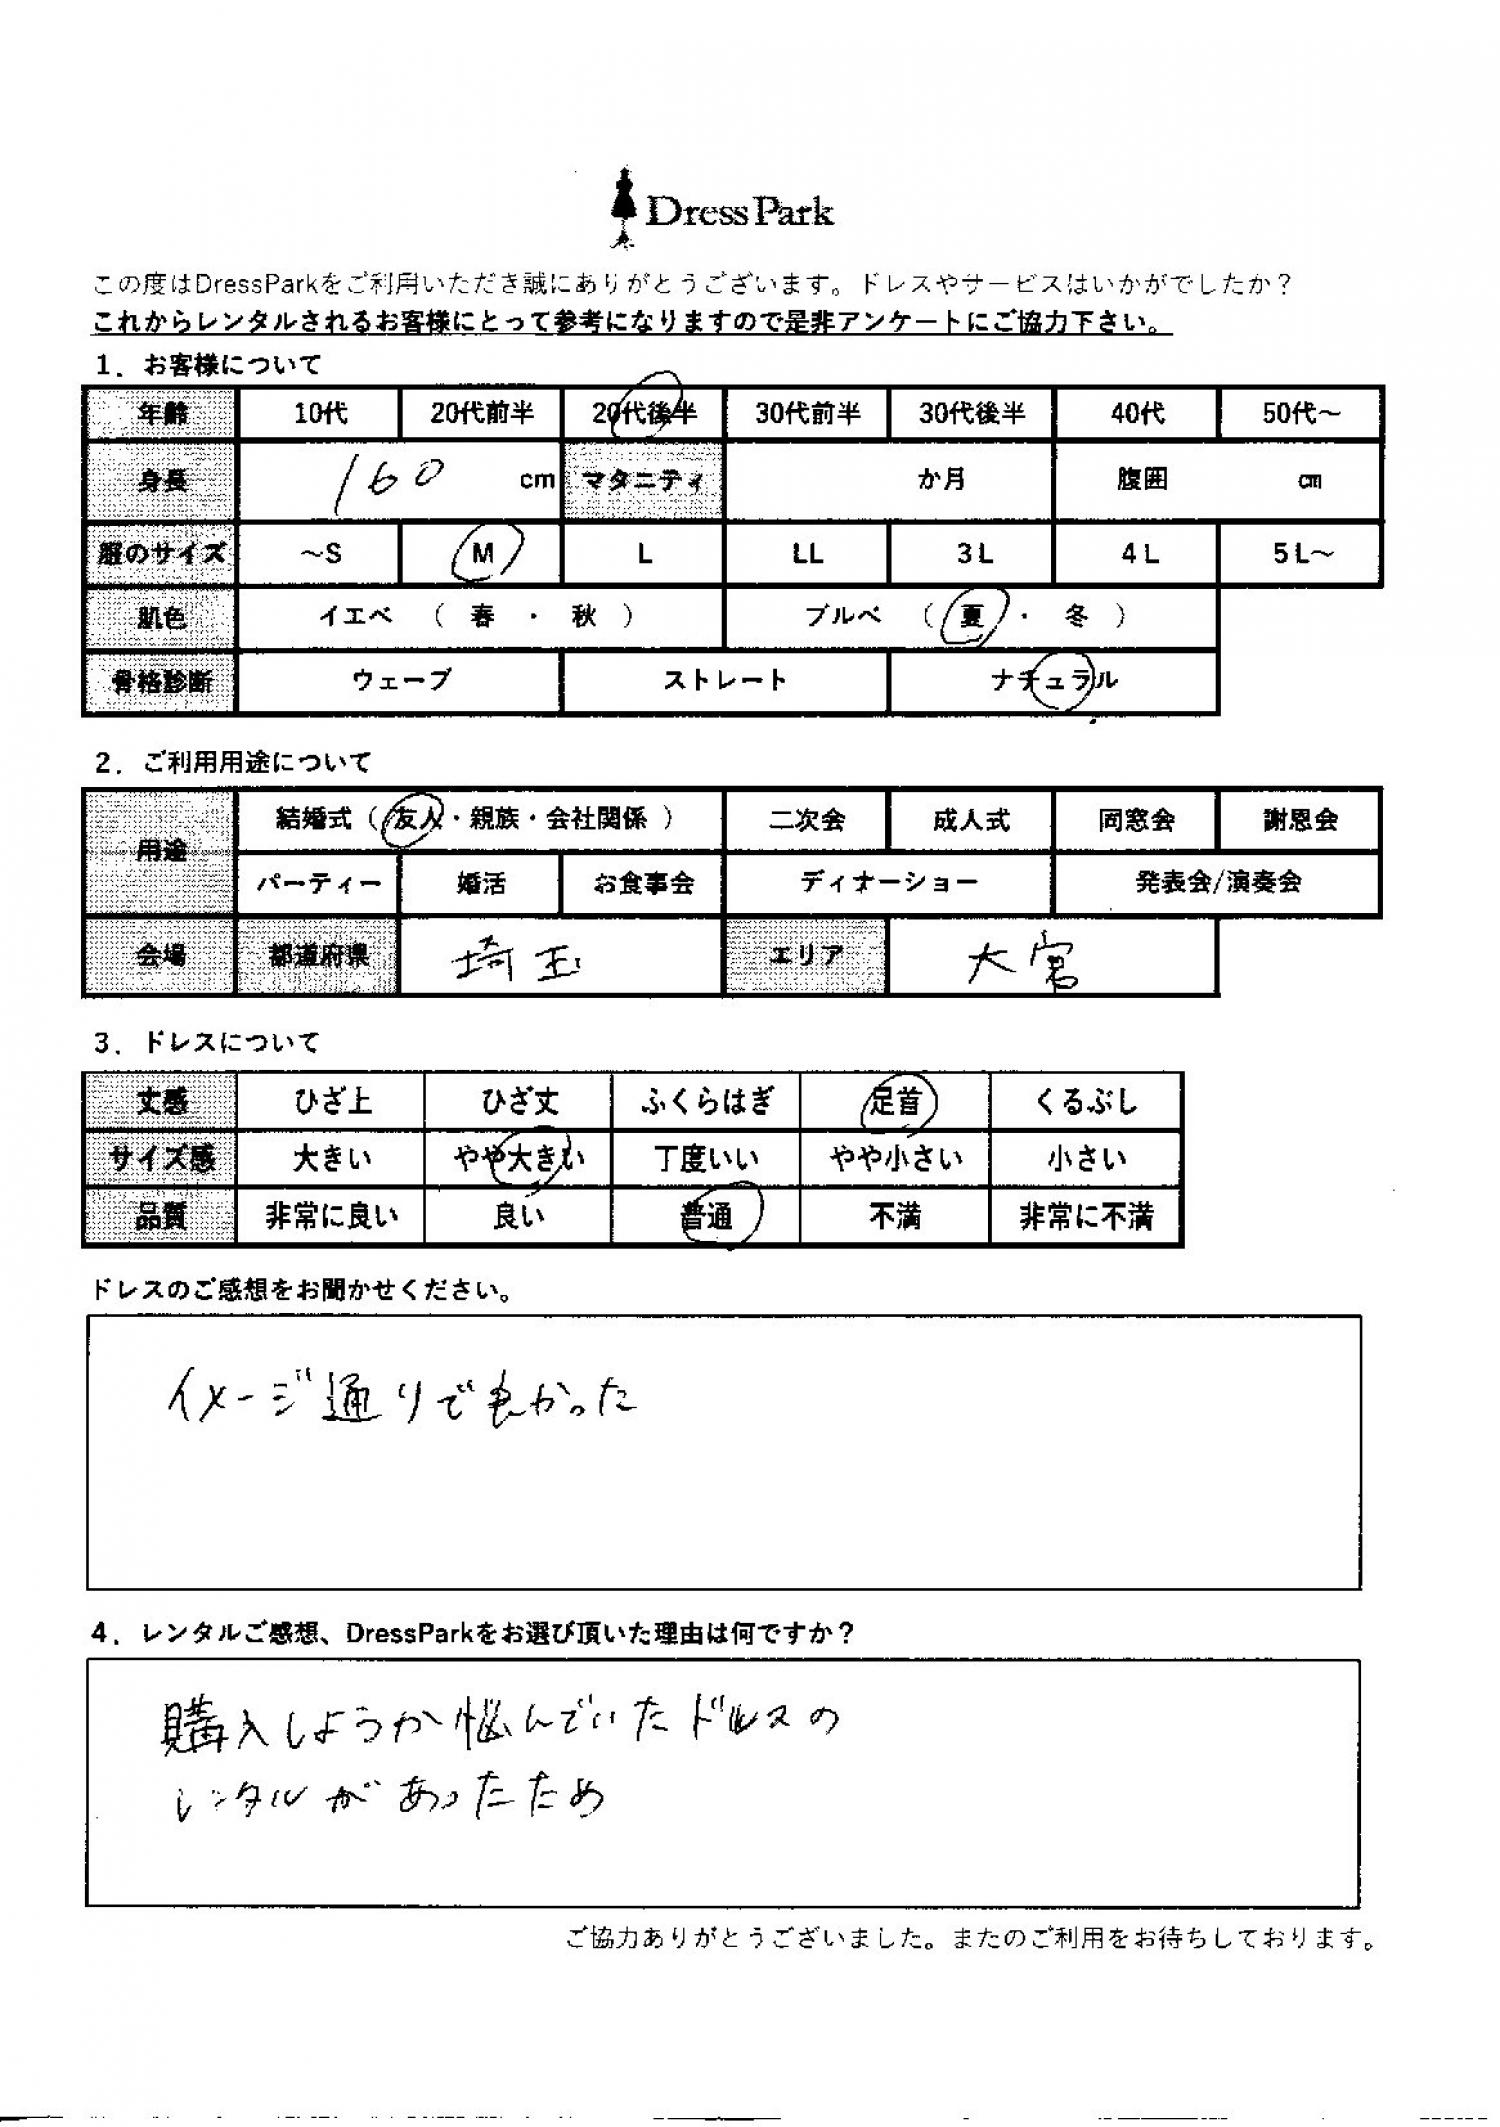 Dress Park
この度はDressParkをご利用いただき誠にありがとうございます。ドレスやサービスはいかがでしたか？
これからレンタルされるお客様にとって参考になりますので是非アンケートにご協力下さい。
1．お客様について
年齢 10代 20代前半 20代後半 30代前半 30代後半 40代 50代～
身長 160 cm マタニティ か月 腹囲 cm
服のサイズ ～S M L LL 3L 4L 5L～
肌色 イエベ （ 春 ・ 秋 ） ブルベ （ 夏 ・ 冬 ）
骨格診断 ウェーブ ストレート ナチュラル
2．ご利用用途について
用途 結婚式（ 友人・親族・会社関係 ） 二次会 成人式 同窓会 謝恩会
パーティー 婚活 お食事会 ディナーショー 発表会/演奏会
会場 都道府県 埼玉 エリア 大宮
3．ドレスについて
丈感 ひざ上 ひざ丈 ふくらはぎ 足首 くるぶし
サイズ感 大きい やや大きい 丁度いい やや小さい 小さい
品質 非常に良い 良い 普通 不満 非常に不満
ドレスのご感想をお聞かせください。
イメージ通りで良かった
4．レンタルご感想、DressParkをお選び頂いた理由は何ですか？
購入しようか悩んでいたドレスの
レンタルがあったため
ご協力ありがとうございました。またのご利用をお待ちしております。